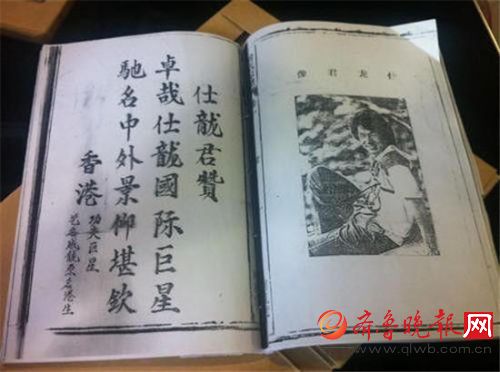 仕龍君贊
卓哉仕龍國际巨星
馳名中外景仰堪欽
香港
功夫巨星
艺名成龍原名港生
仕龙君像
齐鲁晚报网
www.qlwb.com.cn